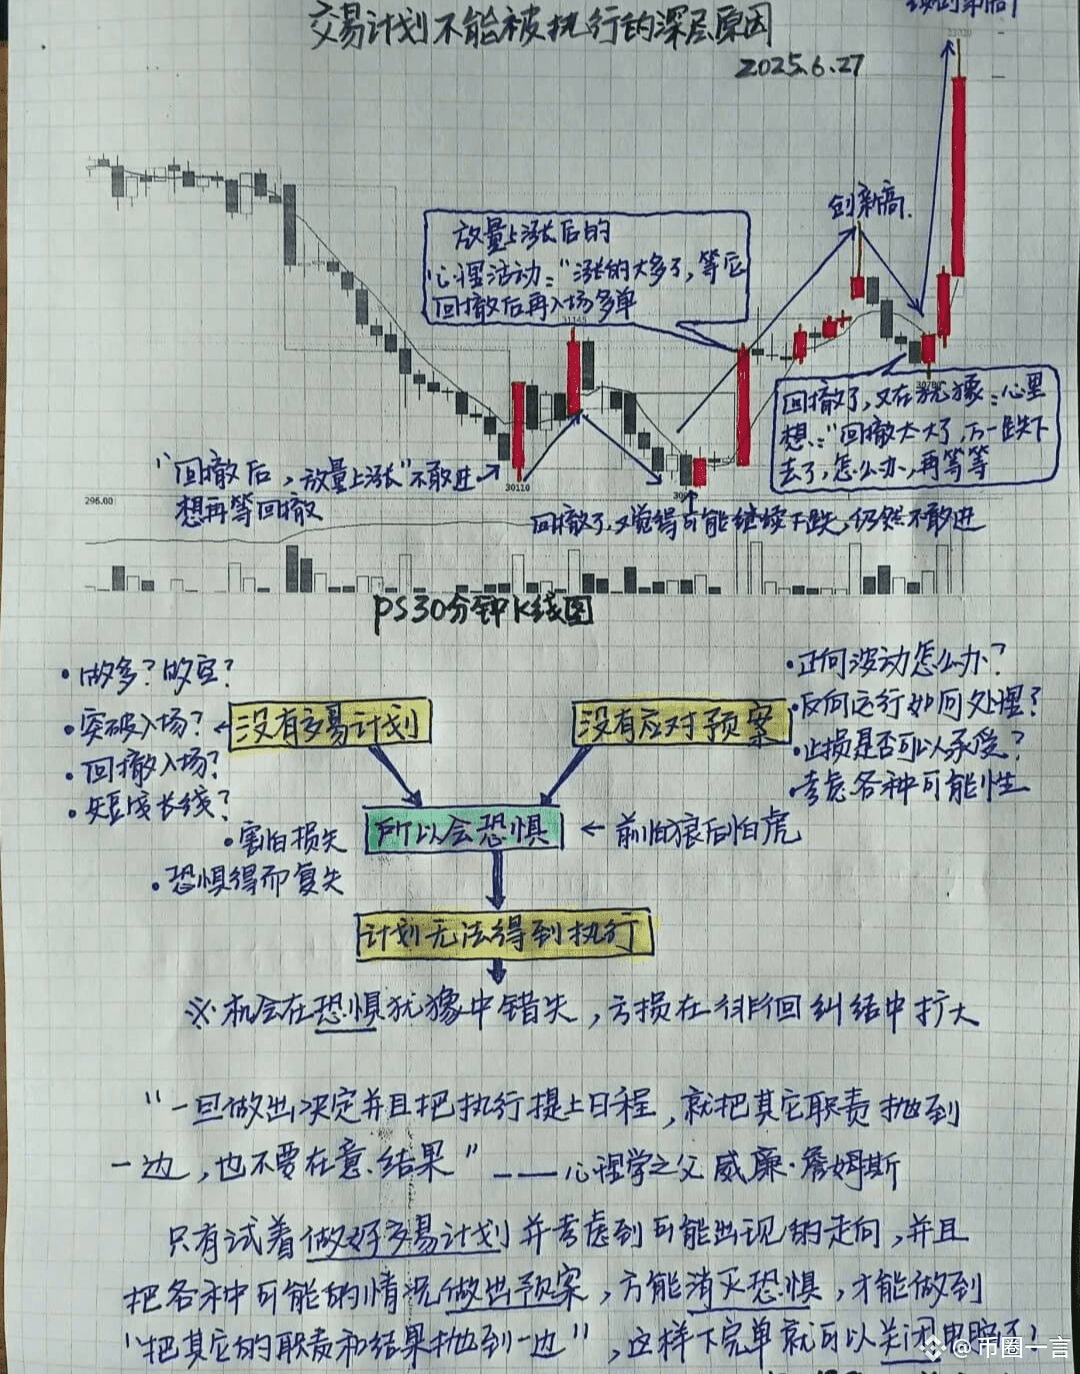 交易计划不能被执行的深层原因
2025.6.27
创新高.
放量上涨后的
心理活动:“涨的太多了,等它
回撤后再入场多单
31140
回撤了,又在犹豫:心里
想:“回撤太大了,万一跌下
去了,怎么办,再等等
“回撤后,放量上涨”不敢进
想再等回撤
30110
回撤了,又觉得可能继续下跌,仍然不敢进
296.00
PS30分钟K线图
·做多?做空?
·突破入场?
·回撤入场?
·短线长线?
没有交易计划
没有应对预案
·正向波动怎么办?
·反向运行如何处理?
·止损是否可以承受?
·考虑各种可能性
·害怕损失
·恐惧得而复失
所以会恐惧
←前怕狼后怕虎
计划无法得到执行
※机会在恐惧犹豫中错失,亏损在徘徊纠结中扩大
“一旦做出决定并且把执行提上日程,就把其它职责抛到
一边,也不要在意结果”——心理学之父 威廉·詹姆斯
只有试着做好交易计划并考虑到可能出现的走向,并且
把各种可能的情况做出预案,方能消灭恐惧,才能做到
“把其它的职责和结果抛到一边”,这样下完单就可以关闭电脑了!
@币圈一言